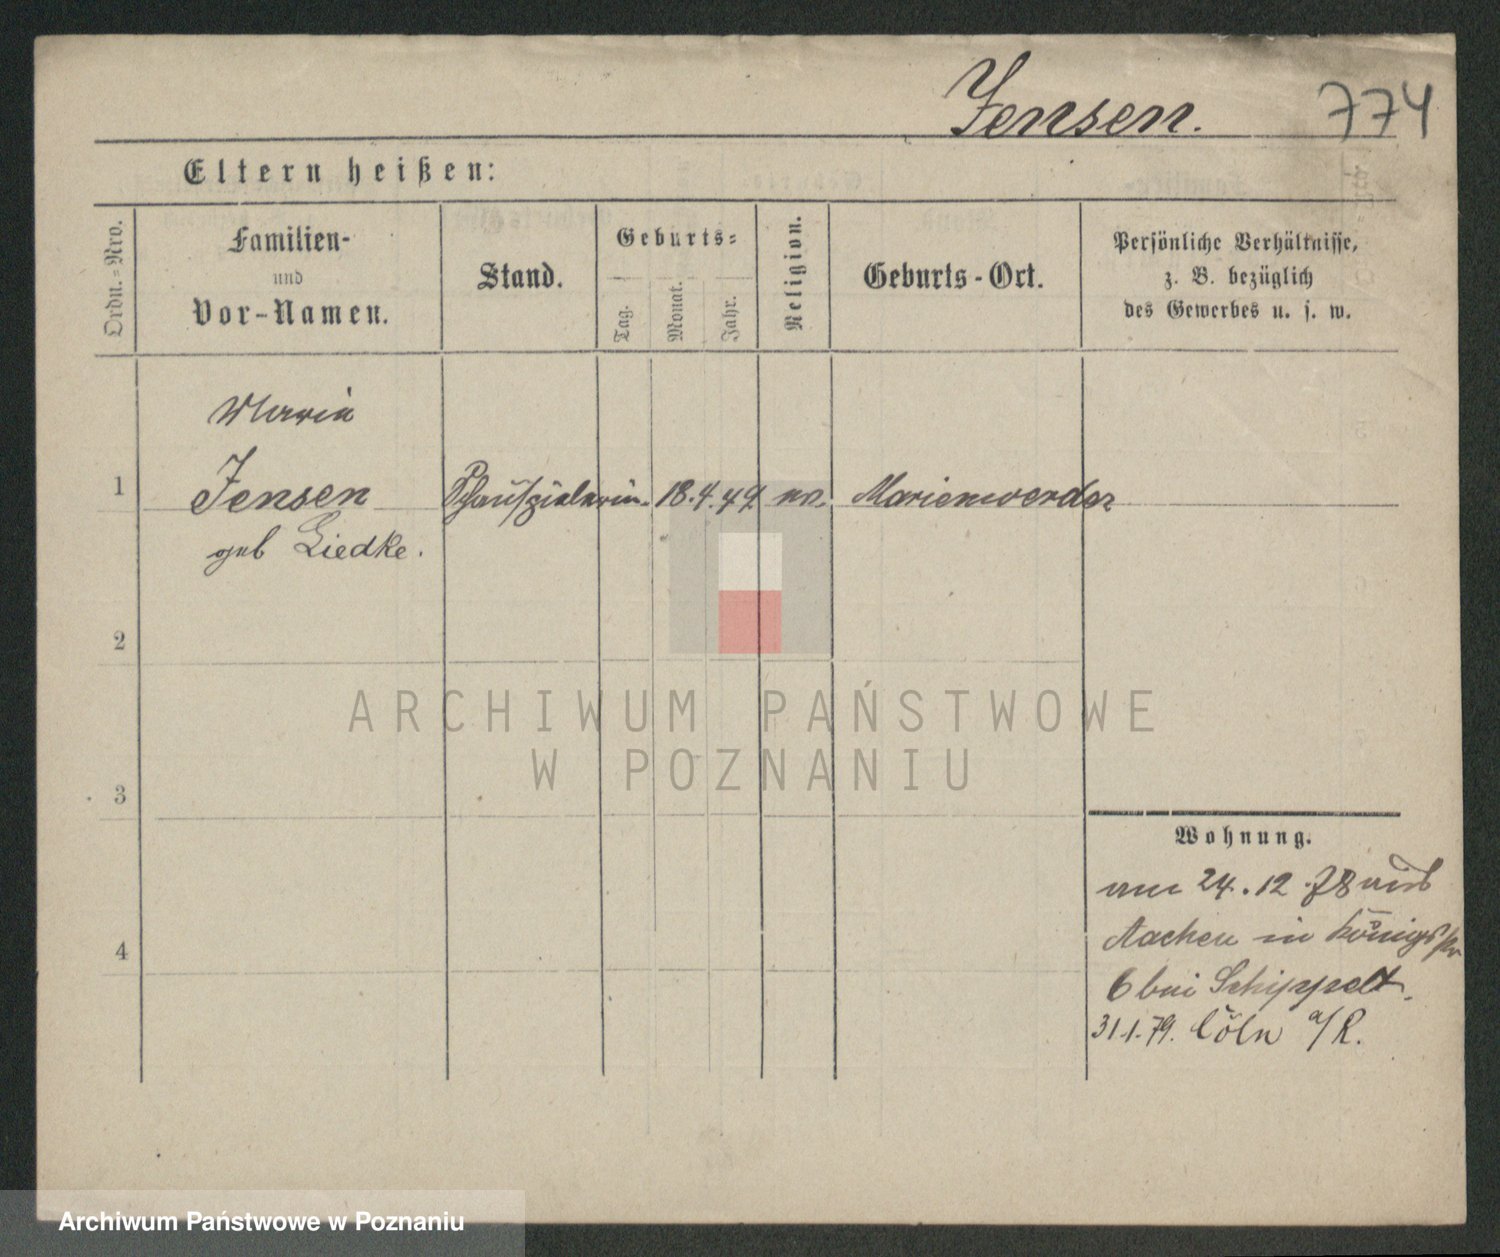 Jensen. 774
Eltern heißen:
Ordn.=Nro.
Familien-
und
Vor-Namen.
Stand.
Geburts=
Tag.
Monat.
Jahr.
Religion.
Geburts-Ort.
Persönliche Verhältnisse,
z. B. bezüglich
des Gewerbes u. s. w.
Maria
1 Jensen Schauspielerin. 18.4.49. ev. Marienwerder
geb Liedke.
2
3
4
Wohnung.
am 24.12.78 aus
Aachen in Königsstr
6 bei Schippelt.
31.1.79. Cöln a/R.
ARCHIWUM PAŃSTWOWE
W POZNANIU
Archiwum Państwowe w Poznaniu